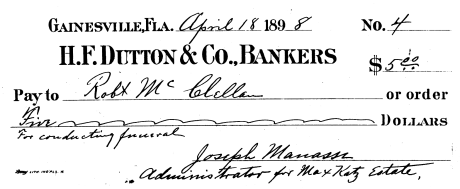 GAINESVILLE, FLA. April 18 1898 No. 4
H. F. DUTTON & CO., BANKERS
$5.00
Pay to Robt Mc Clellan or order
Five DOLLARS
For conducting funeral
Joseph Manasse
Administrator for Max Katz Estate,